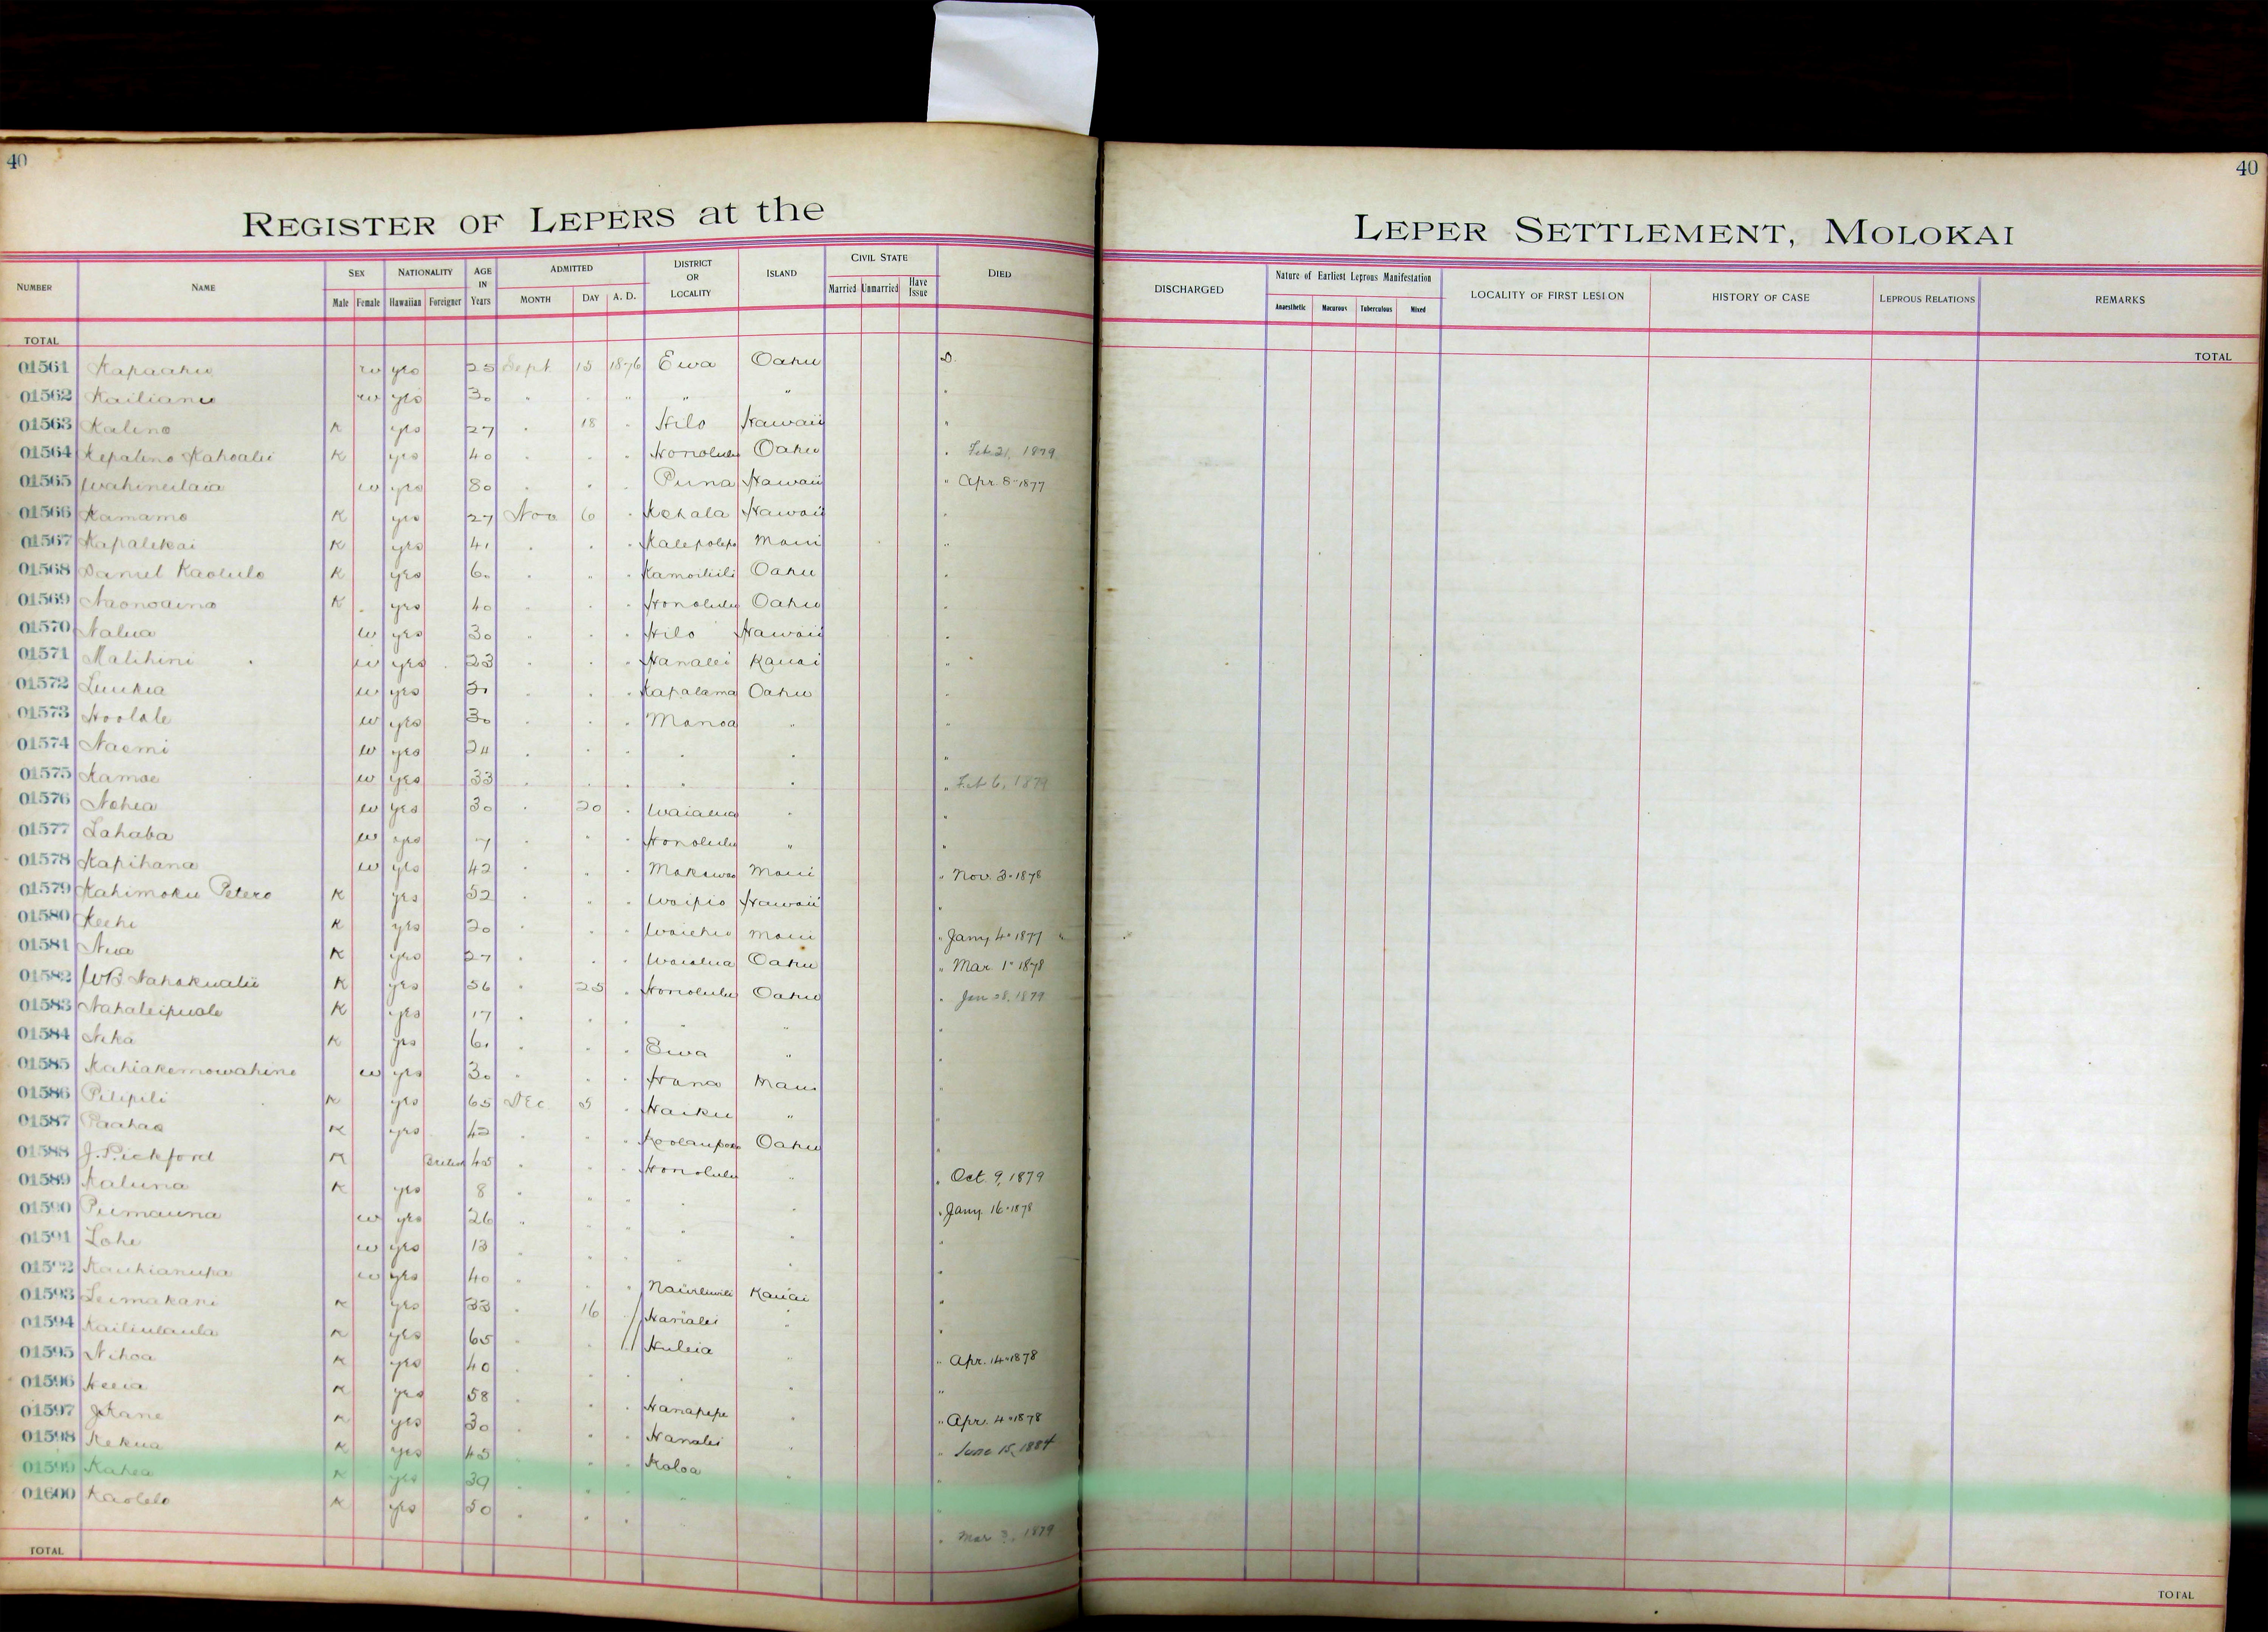 40
REGISTER OF LEPERS at the
NUMBER NAME SEX Male Female NATIONALITY Hawaiian Foreigner AGE IN Years ADMITTED MONTH DAY A. D. DISTRICT OR LOCALITY ISLAND CIVIL STATE Married Unmarried Have Issue DIED
TOTAL
01561 Kapaahu w yes 25 Sept 15 1876 Ewa Oahu D.
01562 Kailianu w yes 30 " " " " " "
01563 Kalino K yes 27 " 18 " Hilo Hawaii "
01564 Kepalino Kahoalii K yes 40 " " " Honolulu Oahu " Feb 21, 1879
01565 Wahineilaia w yes 80 " " " Puna Hawaii " Apr. 8" 1877
01566 Kamamo K yes 27 Nov 6 " Kohala Hawaii "
01567 Kapalekai K yes 41 " " " Kalepolepo Maui "
01568 Daniel Kaolulo K yes 60 " " " Kamoiliili Oahu "
01569 Naonoaina K yes 40 " " " Honolulu Oahu "
01570 Nalua w yes 30 " " " Hilo Hawaii "
01571 Malihini w yes 23 " " " Hanalei Kauai "
01572 Luukia w yes " " " Kapalama Oahu "
01573 Hoolale w yes 30 " " " Manoa " "
01574 Naomi w yes 24 " " " " " "
01575 Kamae w yes 33 " " " " " " Feb 6, 1879
01576 Nohea w yes 30 " 20 " Waialua " "
01577 Lahaba w yes 7 " " " Honolulu " "
01578 Kapihana w yes 42 " " " Makawao Maui " Nov. 3" 1878
01579 Kahimoku Petero K yes 52 " " " Waipio Hawaii "
01580 Keehi K yes 20 " " " Waiehu Maui " Jany 4" 1877 "
01581 Niua K yes 27 " " " Waialua Oahu " Mar. 1" 1878
01582 WB Nahokualii K yes 56 " 25 " Honolulu Oahu " Jan 28, 1879
01583 Nahaleipuale K yes 17 " " " " " "
01584 Nika K yes 61 " " " Ewa " "
01585 Kahiakemowahine w yes 30 " " " Hana Maui "
01586 Pilipili K yes 65 Dec 5 " Haiku " "
01587 Paahao K yes 42 " " " Koolaupoko Oahu "
01588 J. Pickford K British 45 " " " Honolulu " " Oct. 9, 1879
01589 Kaluna K yes 8 " " " " " " Jany 16" 1878
01590 Piimauna w yes 26 " " " " " "
01591 Lohe w yes 13 " " " " " "
01592 Kauhianupa w yes 40 " " " Nawiliwili Kauai "
01593 Leimakani K yes 33 " 16 " Hanalei " "
01594 Kailiulaula K yes 65 " " " Huleia " " Apr. 14" 1878
01595 Nihoa K yes 40 " " " " " "
01596 Heeia K yes 58 " " " Hanapepe " " Apr. 4" 1878
01597 J Kane K yes 30 " " " Hanalei " " June 15, 1884
01598 Kekua K yes 45 " " " Koloa " "
01599 Kahea K yes 39 " " " " " "
01600 Kaolelo K yes 50 " " " " Mar 3, 1879
TOTAL
40
LEPER SETTLEMENT, MOLOKAI
DISCHARGED Nature of Earliest Leprous Manifestation Anaesthetic Macurous Tuberculous Mixed LOCALITY OF FIRST LESION HISTORY OF CASE LEPROUS RELATIONS REMARKS
TOTAL
TOTAL